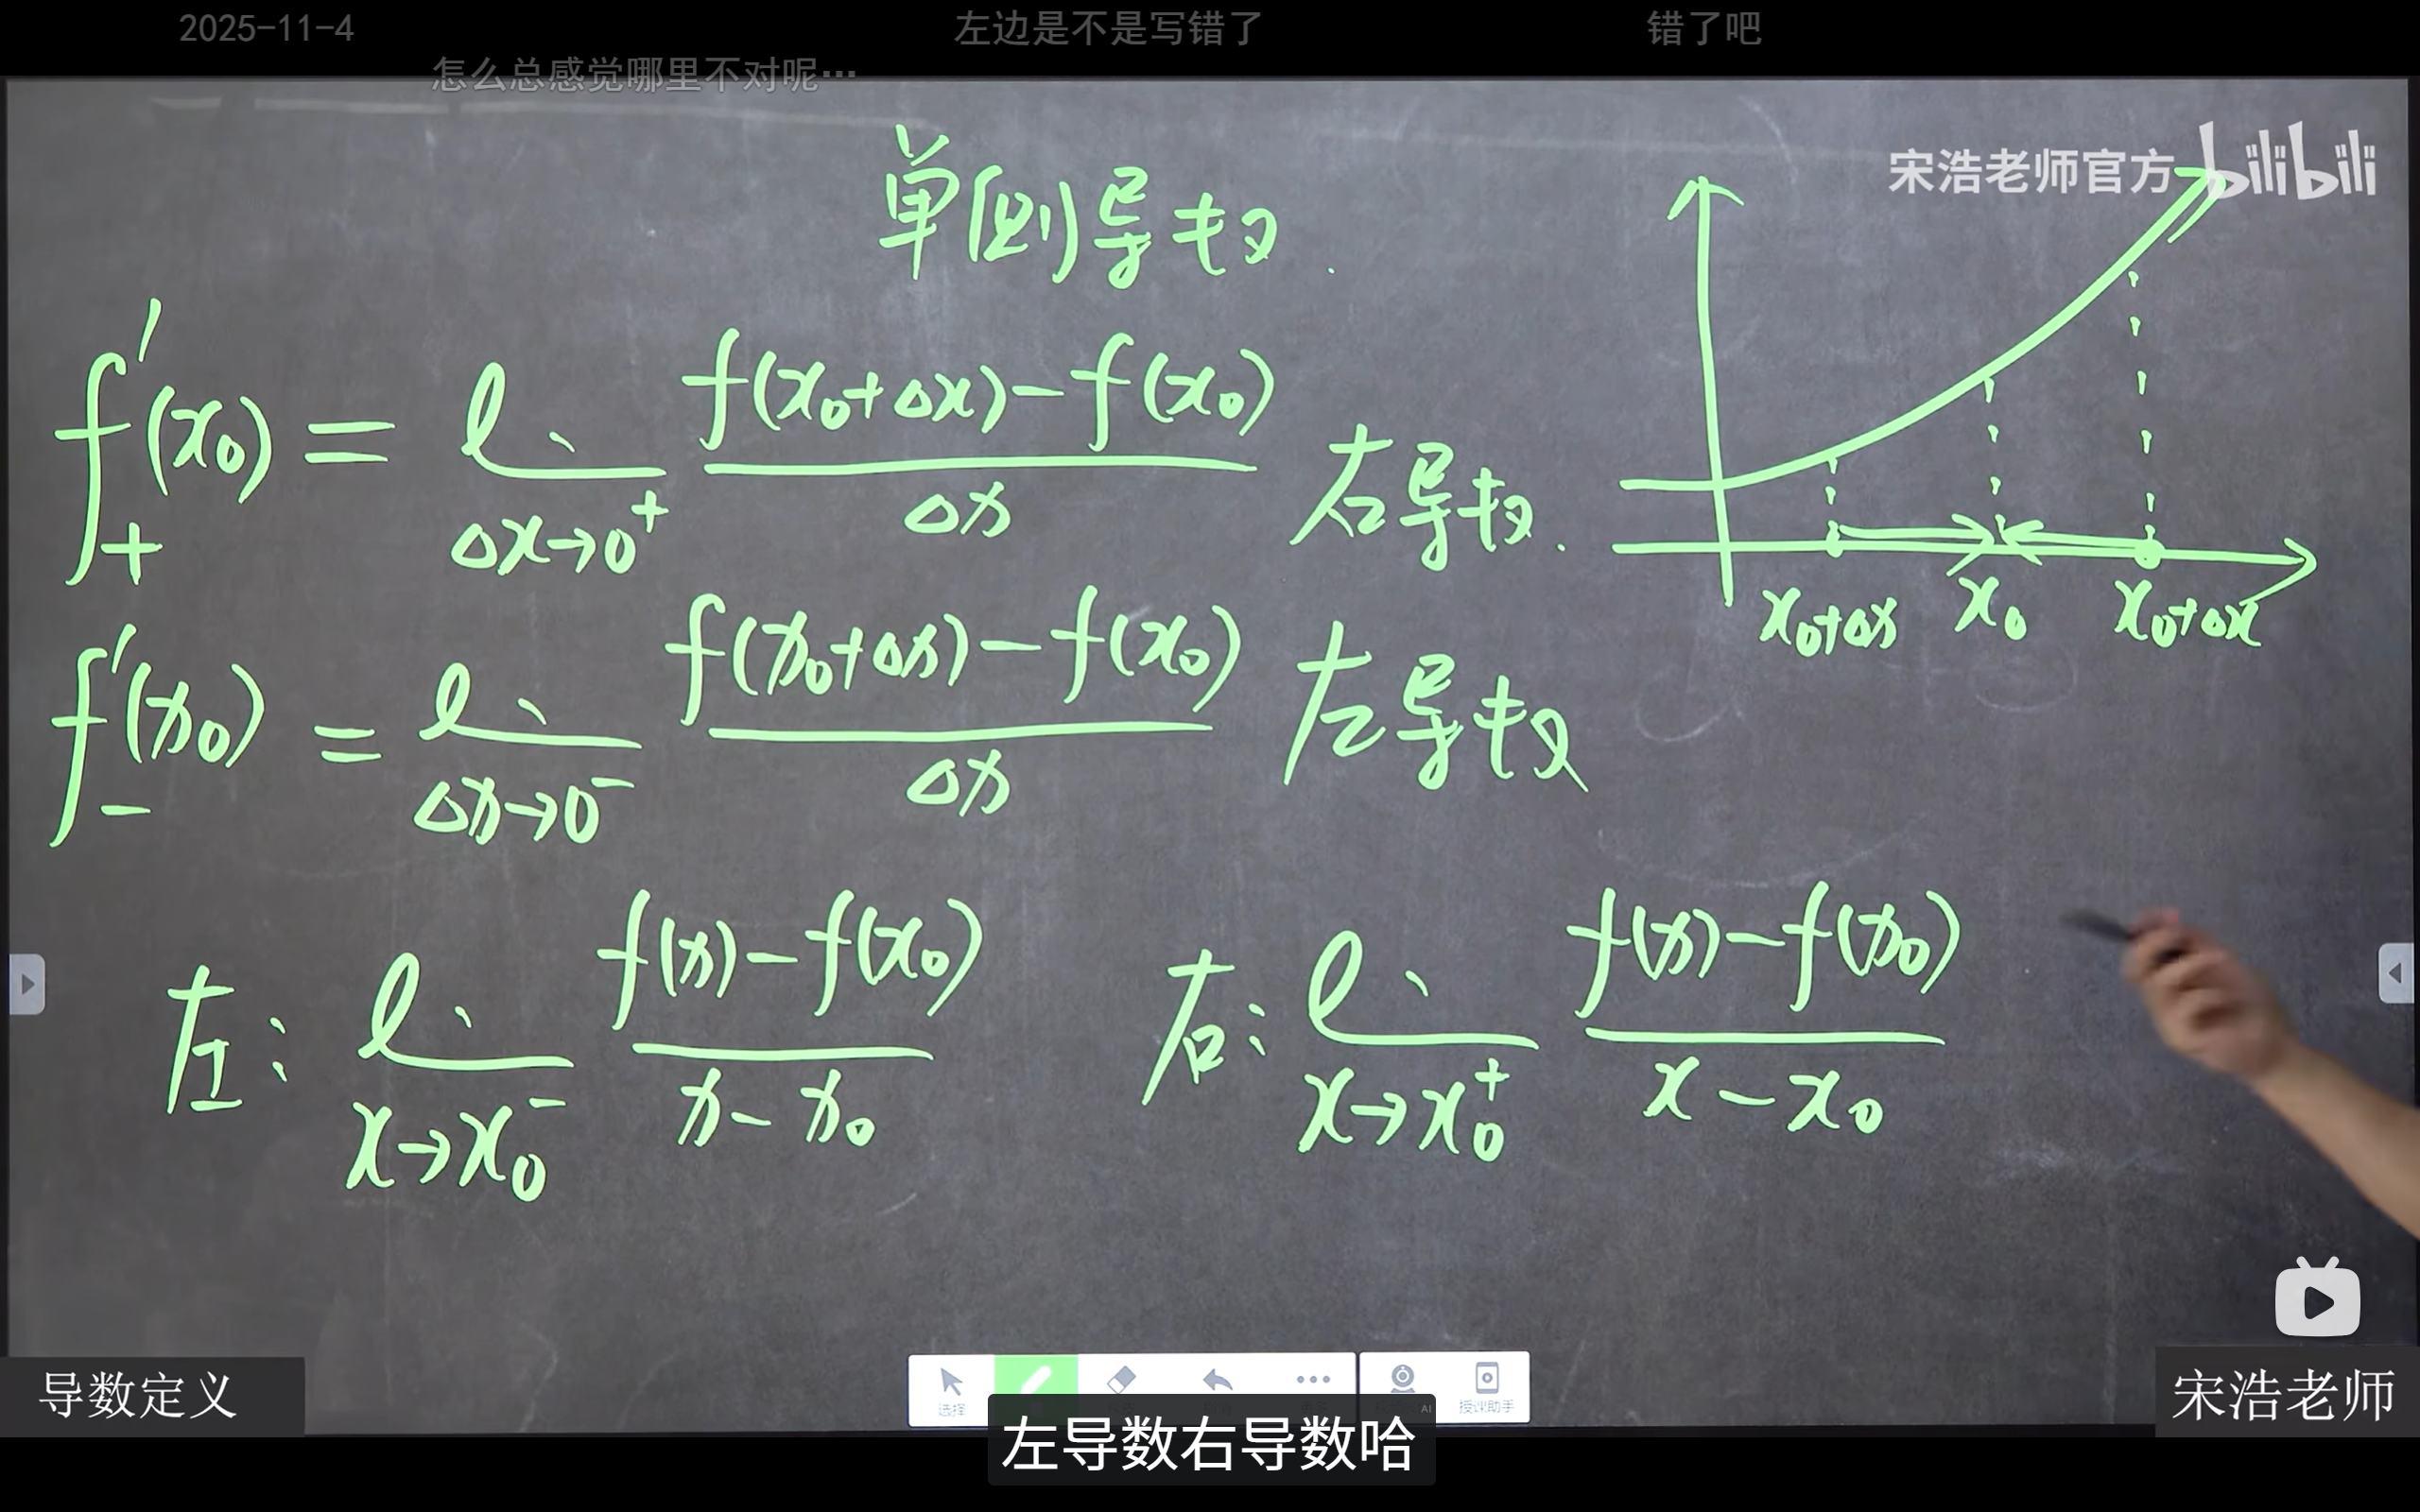 2025-11-4 左边是不是写错了 错了吧
怎么总感觉哪里不对呢…
宋浩老师官方 bilibili
单侧导数.
f'₊(x₀) = lim Δx→0⁺ f(x₀+Δx)-f(x₀) / Δx 右导数.
x₀+Δx x₀ x₀+Δx
f'₋(x₀) = lim Δx→0⁻ f(x₀+Δx)-f(x₀) / Δx 左导数
左: lim x→x₀⁻ f(x)-f(x₀) / x-x₀
右: lim x→x₀⁺ f(x)-f(x₀) / x-x₀
导数定义
选择
授课助手
AI
左导数右导数哈
宋浩老师